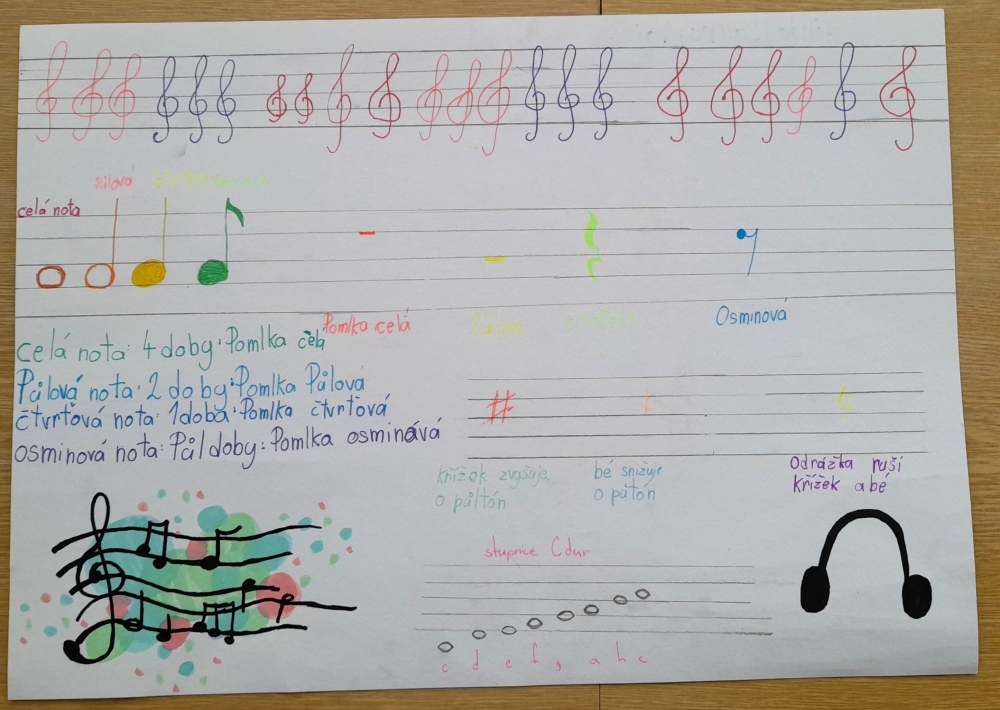 Půlová
celá nota
Pomlka celá
Půlová
čtvrťová
Osminová
celá nota: 4 doby: Pomlka celá
Půlová nota: 2 doby: Pomlka Půlová
čtvrťová nota: 1 doba: Pomlka čtvrťová
osminová nota: Půl doby: Pomlka osminává
křížek zvyšuje
o půltón
bé snižuje
o půtón
Odrážka ruší
křížek a bé
stupnice C dur
c d e f g a h c